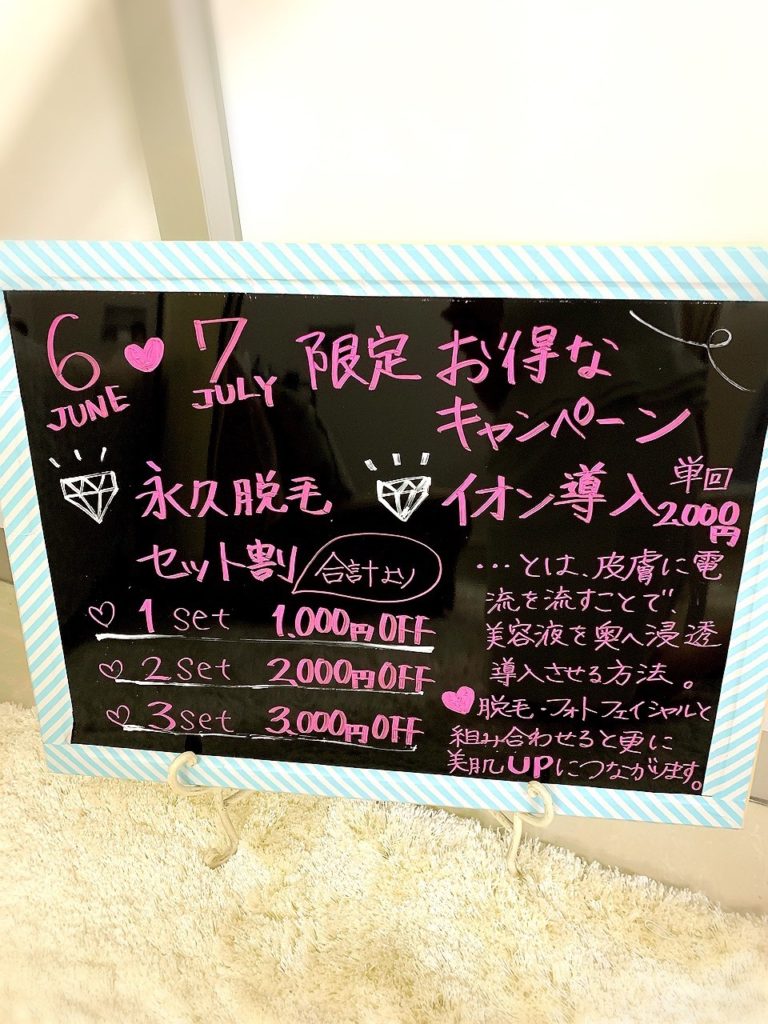 6 ♥ 7 限定 お得な
JUNE JULY キャンペーン
永久脱毛
セット割 合計より
♡ 1 set 1.000円OFF
♡ 2 set 2.000円OFF
♡ 3 set 3.000円OFF
イオン導入 単回
2000円
…とは、皮膚に電
流を流すことで、
美容液を奥へ浸透
導入させる方法。
♥ 脱毛・フォトフェイシャルと
組み合わせると更に
美肌UPにつながります。